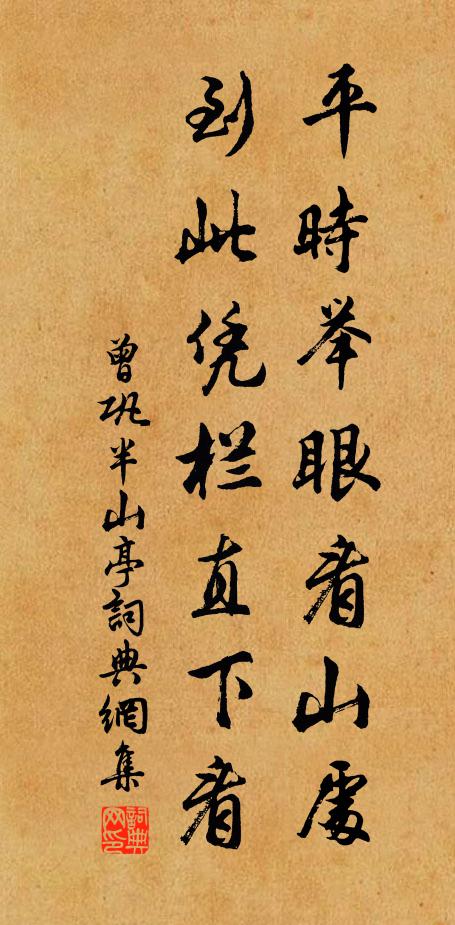 平時举眼看山處
到此凭栏直下看
曾巩半山亭詞典網集
詞典網印